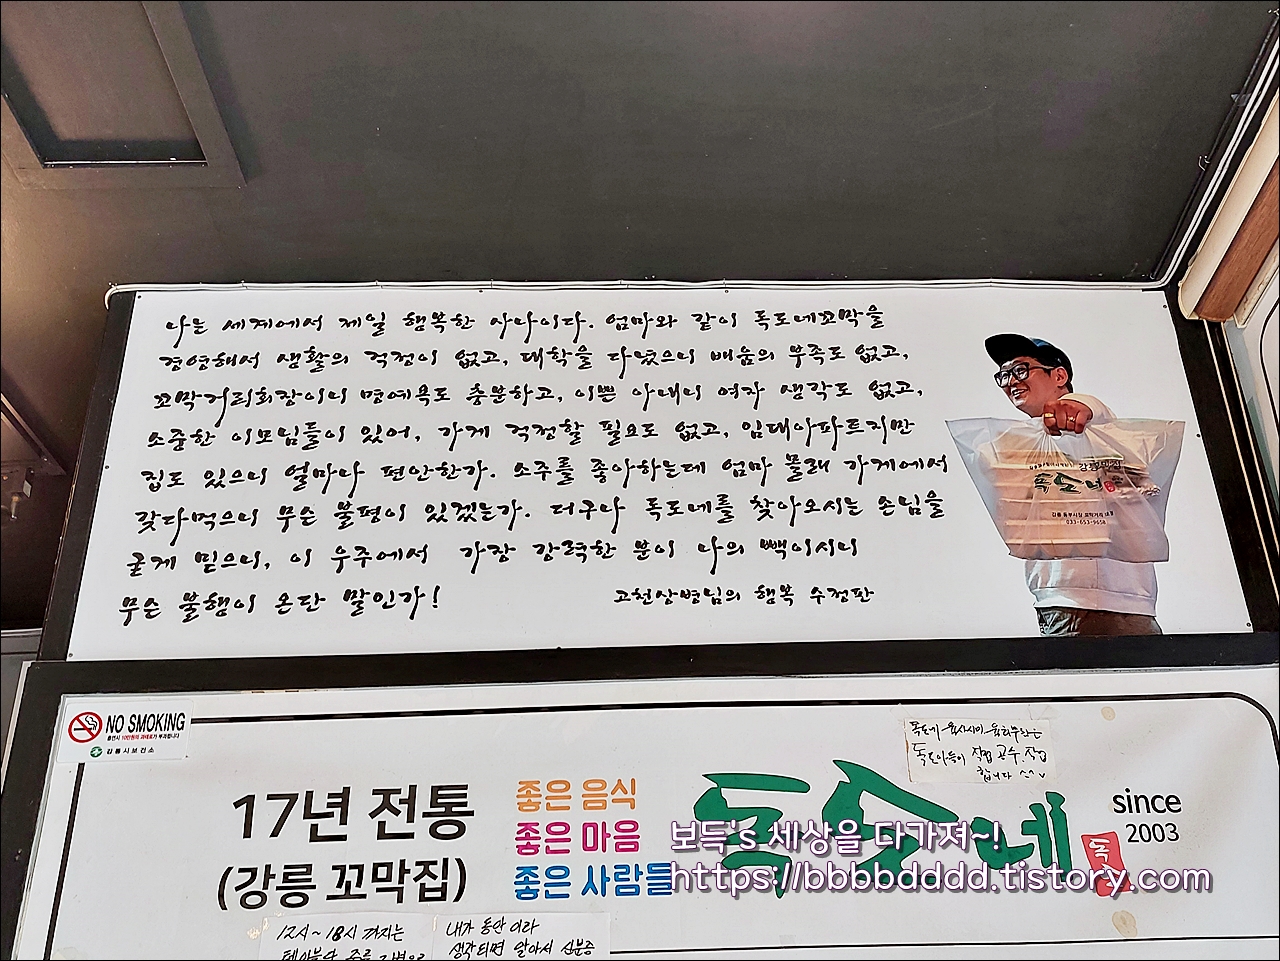 나는 세계에서 제일 행복한 사나이다. 엄마와 같이 독도네꼬막을
경영해서 생활의 걱정이 없고, 대학을 다녔으니 배움의 부족도 없고,
꼬막거리회장이니 명예욕도 충분하고, 이쁜 아내니 여자 생각도 없고,
소중한 이모님들이 있어, 가게 걱정할 필요도 없고, 임대아파트지만
집도 있으니 얼마나 편안한가. 소주를 좋아하는데 엄마 몰래 가게에서
갖다먹으니 무슨 불평이 있겠는가. 더구나 독도네를 찾아오시는 손님을
굳게 믿으니, 이 우주에서 가장 강력한 분이 나의 빽이시니
무슨 불행이 온단 말인가!
고천상병님의 행복 수정판
강릉
독도네
강릉 동부시장 꼬막거리
033-653-9658
NO SMOKING
흡연시 10만원의 과태료가 부과됩니다
강릉시보건소
독도네 육사시미·육회부위는
독도아들이 직접 공수, 작업
합니다 ^^v
17년 전통
(강릉 꼬막집)
좋은 음식
좋은 마음
좋은 사람들
독도네
since
2003
보득's 세상을 다가져~!
https://bbbbdddd.tistory.com
12시~18시 까지는
내가 동안이라
생각되면 알아서 신분증